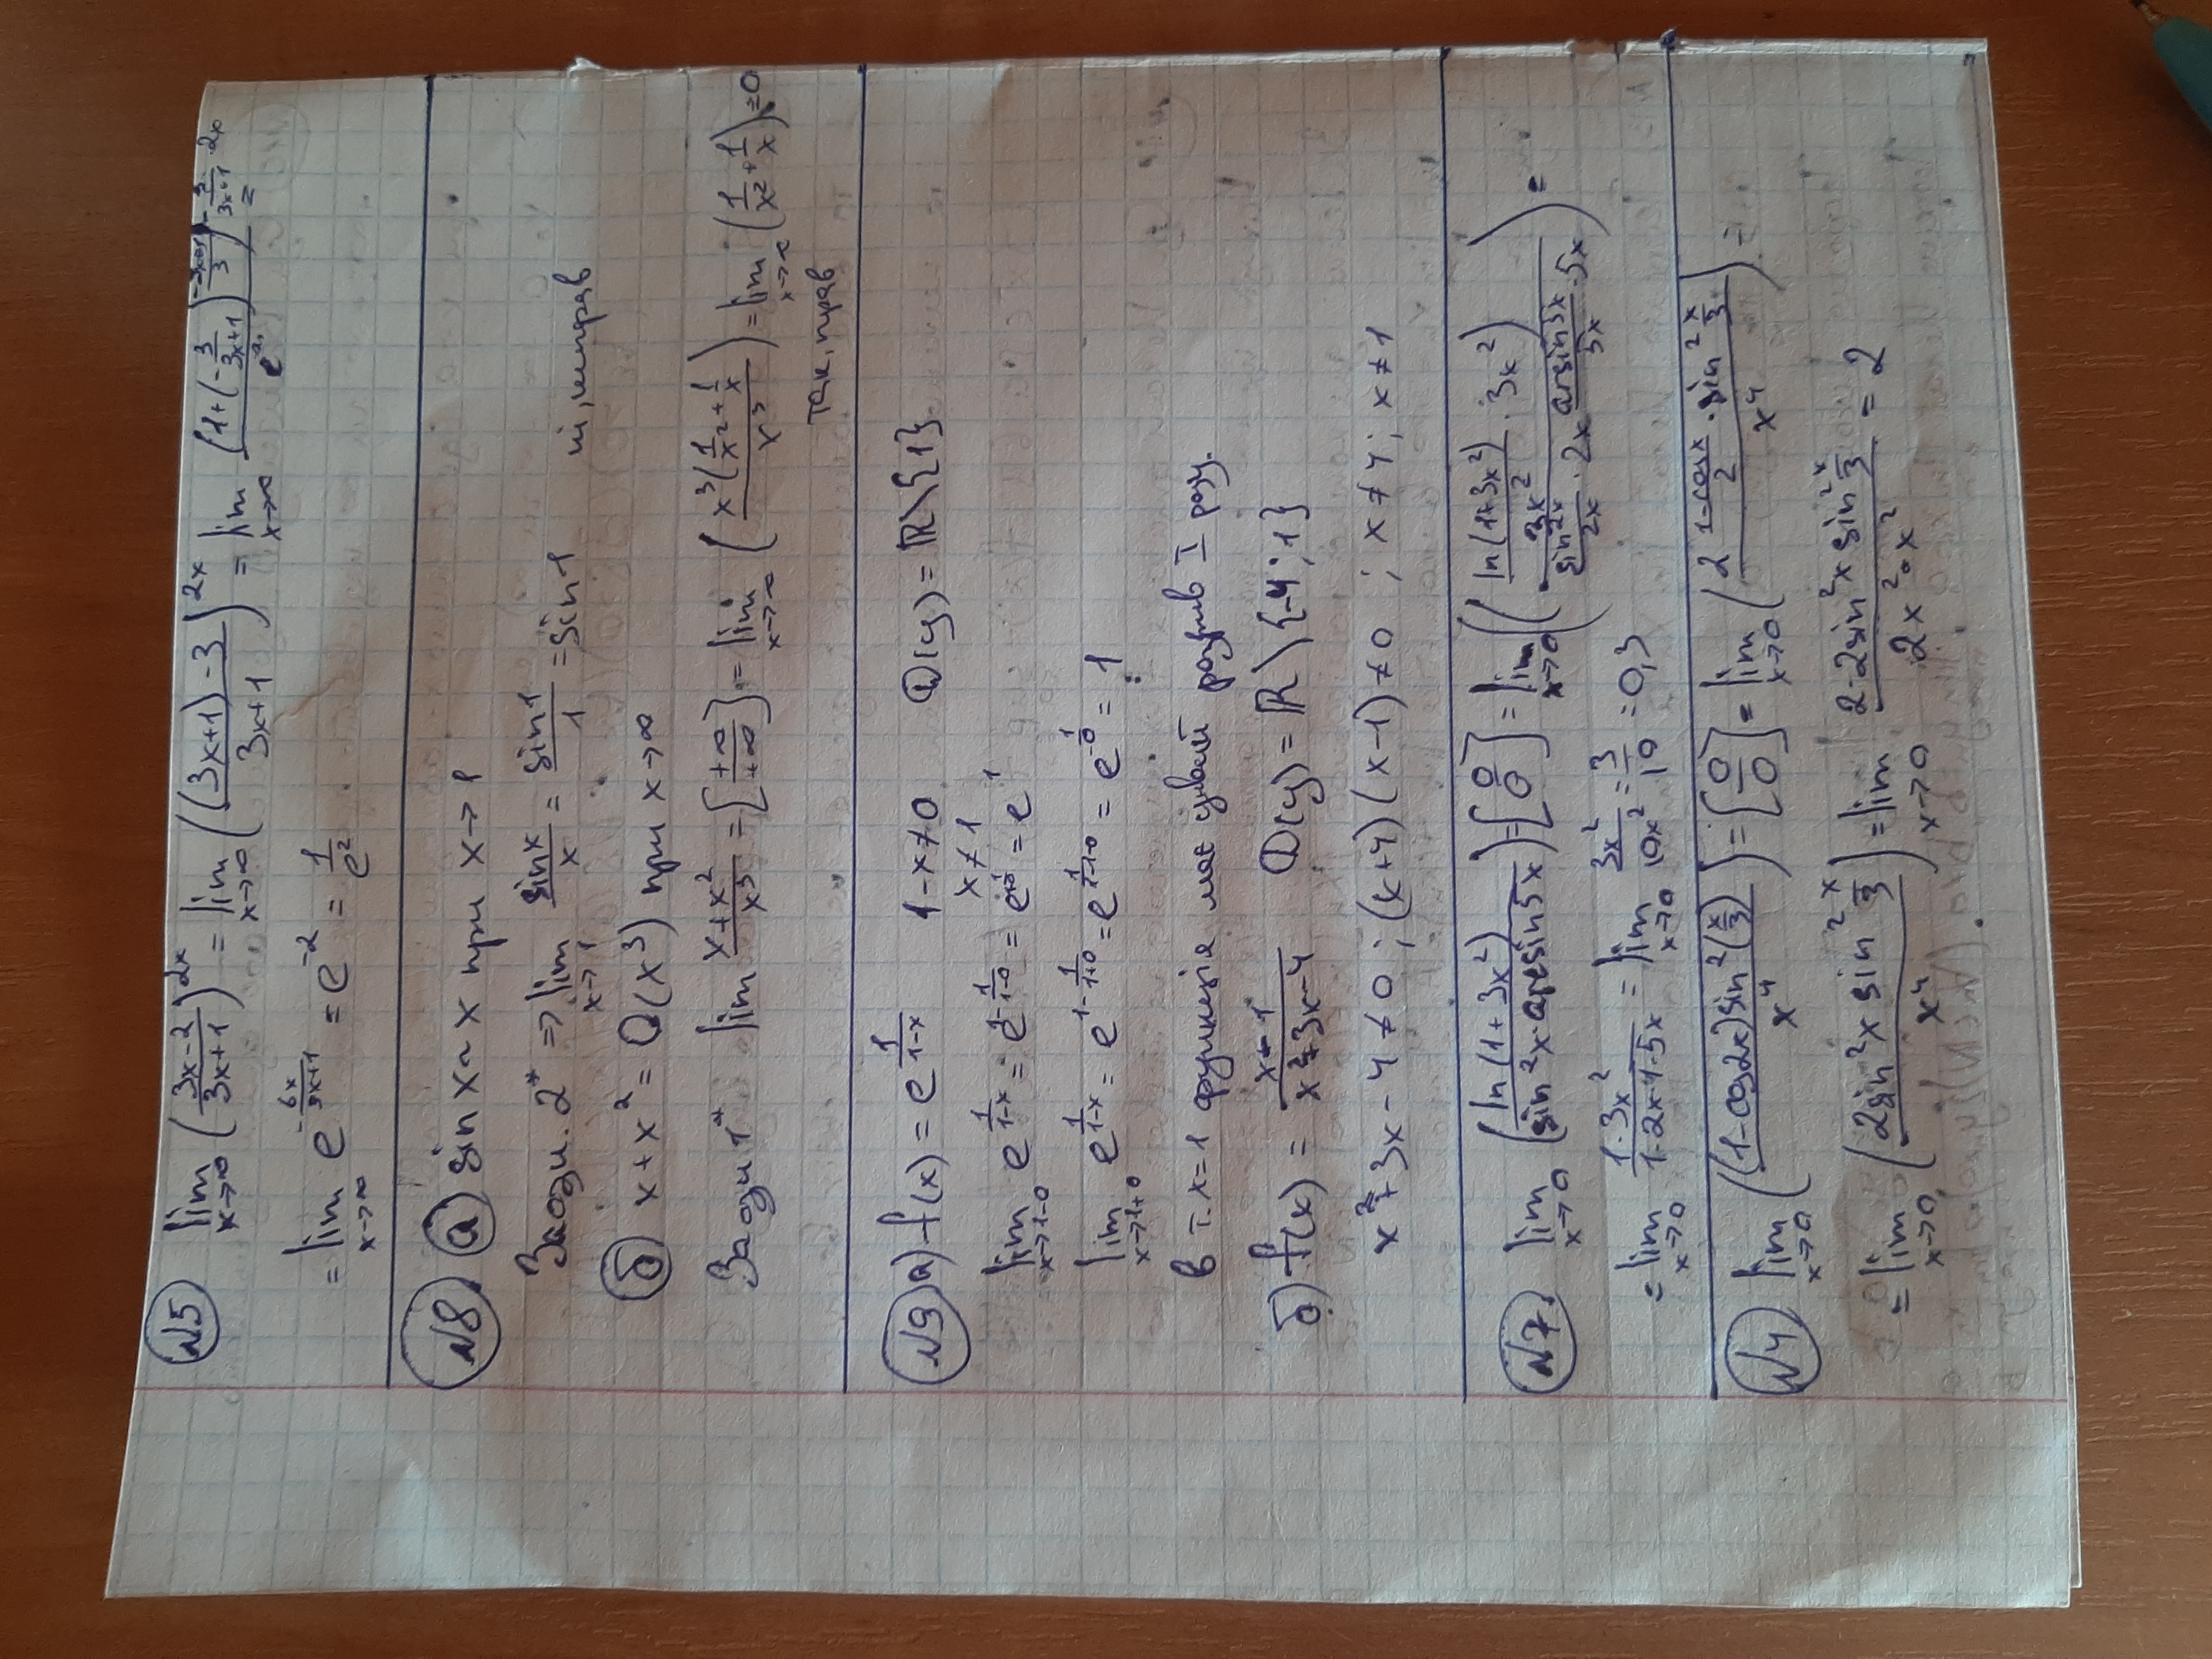 №5 lim x→∞ ((3x-2)/(3x+1))^2x = lim x→∞ (((3x+1)-3)/(3x+1))^2x = lim x→∞ (1+(-3/(3x+1))^(-(3x+1)/3))^(-3/(3x+1)·2x) =
= lim x→∞ e^(-6x/(3x+1)) = e^-2 = 1/e²
№8. а) sin x ~ x при x→1
За озн. 2* ⇒ lim x→1 sin x/x = sin1/1 = sin1
б) x+x² = O(x³) при x→∞
За озн 1* lim (x+x²)/x³ = [+∞/+∞] = lim x→∞ (x³(1/x²+1/x)/x³) = lim x→∞ (1/x²+1/x) = 0
так, прав
№9 а) f(x) = e^(1/(1-x)) 1-x≠0 D(y) = ℝ\{1}
x≠1
lim x→1-0 e^(1/(1-x)) = e^(1-1/(1-0)) = = e^1
lim x→1+0 e^(1/(1-x)) = e^(1-1/(1+0)) = e^(1/(1-1-0)) = e^(-1/0) = 1
в т. x=1 функція має розрив I роду.
б) f(x) = (x-1)/(x²+3x-4) D(y) = ℝ\{-4;1}
x²+3x-4≠0 ; (x+4)(x-1)≠0 ; x≠4; x≠1
№7. lim x→0 (ln(1+3x²)/(sin2x·arcsin5x)) = [0/0] = lim x→0 ((ln(1+3x²)/3x² · 3x²)/(sin2x/2x · 2x arsin5x/5x · 5x)) =
= lim x→0 1·3x²/(1·2x·1·5x) = lim x→0 3x²/10x² = 3/10 = 0,3
№4 lim x→0 ((1-cos2x)sin²(x/3)/x⁴) = [0/0] = lim x→0 (2 (1-cosx)/2 · sin² x/3 / x⁴) =
= lim x→0 (2sin²x sin² x/3 / x⁴) = lim x→0 2·2sin²x sin² x/3 / (2x²·x²) = 2